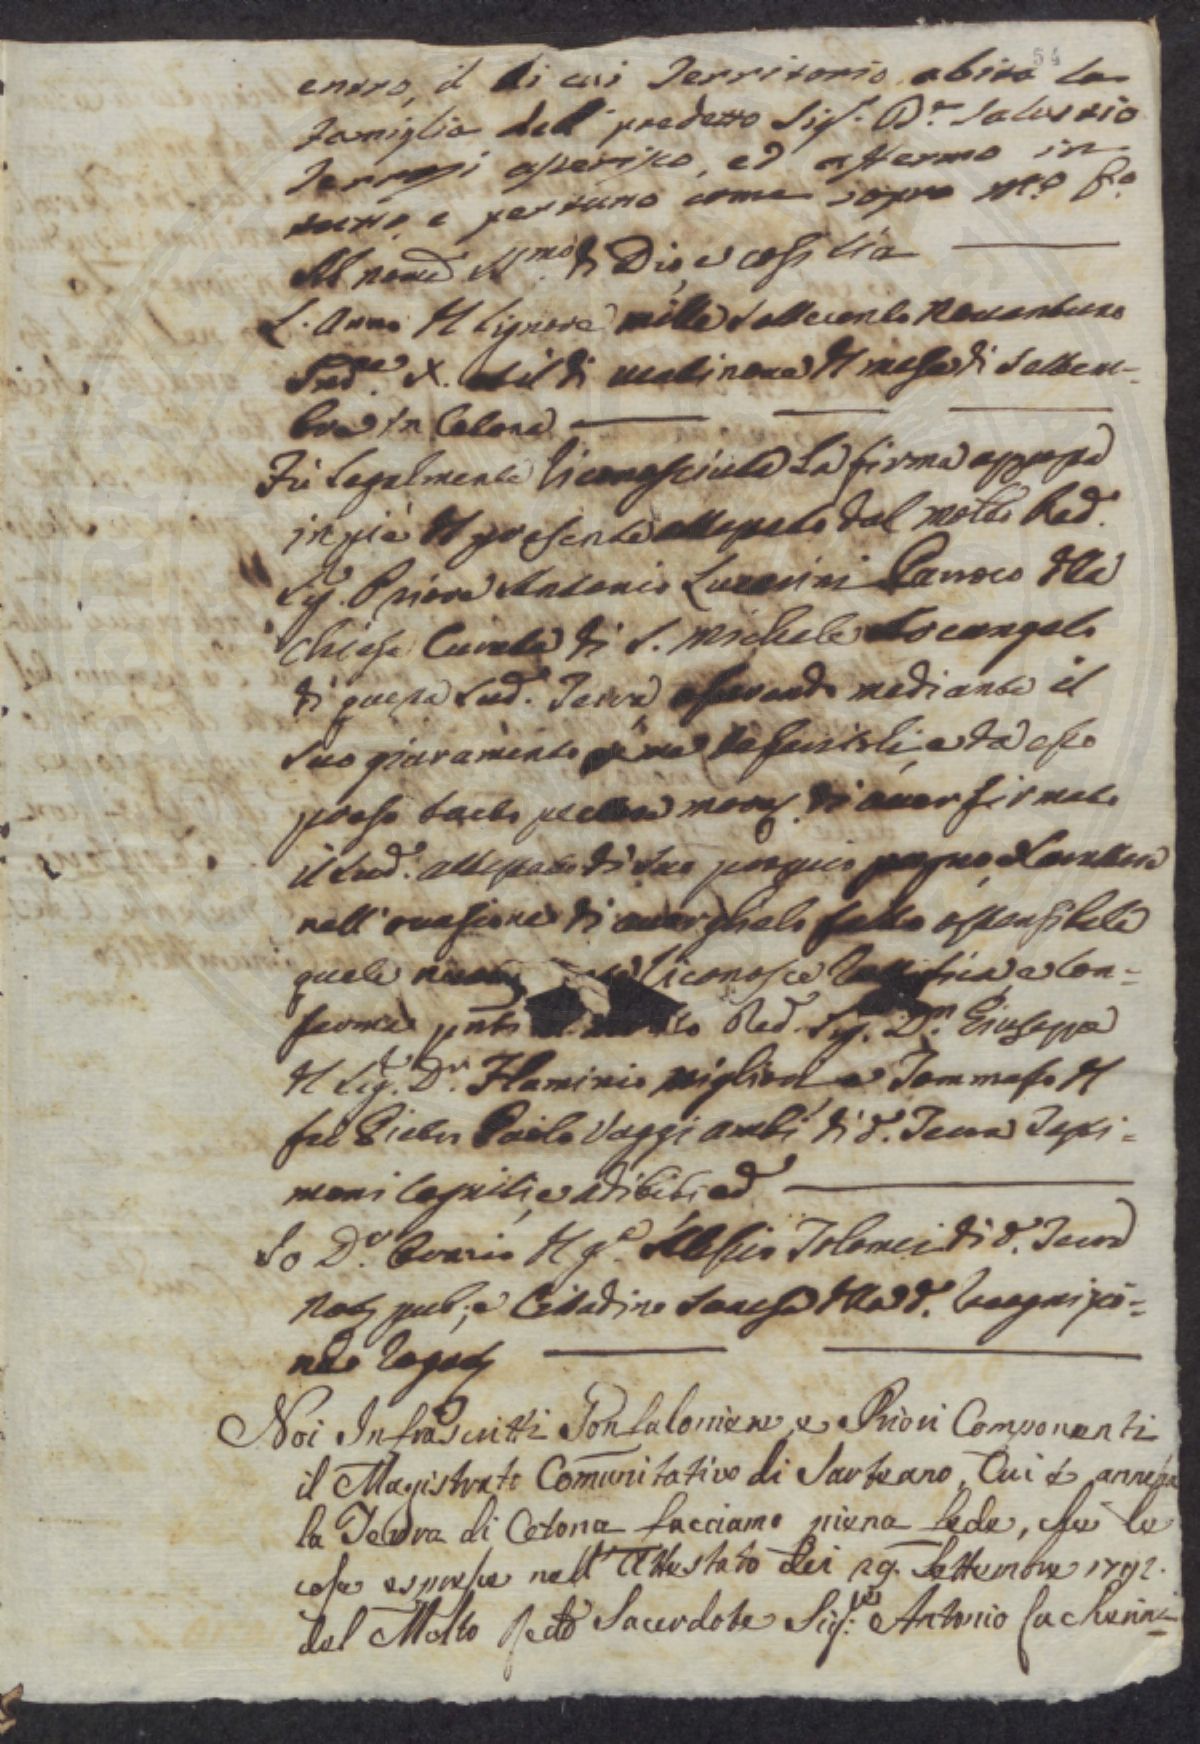 54
entro, il di cui Territorio abita la
famiglia dell' predetto Sig.r D.r Salustio
Terrosi asserisco, ed affermo in
tutto, e per tutto come sopra m.o p.o
Al nome SS.mo di Dio e così sia
L'Anno del Signore mille settecento novantuno
Ind.ne X. ed il dì del mese di Settem-
bre in Cetona
Fù legalmente riconosciuta la firma apposta
in piè del presente attestato dal molto Red.
Sig. Priore Antonio Parroco della
Chiesa Curata di S. Michele Arcangelo
di questa sud.a Terra mediante il
suo giuramento e da esso
preso tacto pectore more di aver firmato
il sud.o attestato di suo proprio pugno, e carattere
nell' occasione di avergliela fatta ostensibile
quale riconosce, ratifica, e con-
ferma pnti Red. Sig. D.n Giuseppe
del Sig. D.r Flaminio Migliori, e Tommaso del
fu Pietro Paolo Vaggi ambi di d.a Terra Testi-
moni cogniti, e adibiti ed
Io D.r Curzio del q.m Alessio Tolomei di d.a Terra
Not. pub., e Cittadino Senese della d.a recognizio-
ne rogato
Noi Infrascritti Gonfaloniere, e Priori Componenti
il Magistrato Comunitativo di Sarteano, Cui è annessa
la Terra di Cetona facciamo piena fede, che le
cose espresse nell' Attestato dei 29. Settembre 1792.
del Molto Redo Sacerdote Sig.re Antonio Lucherini